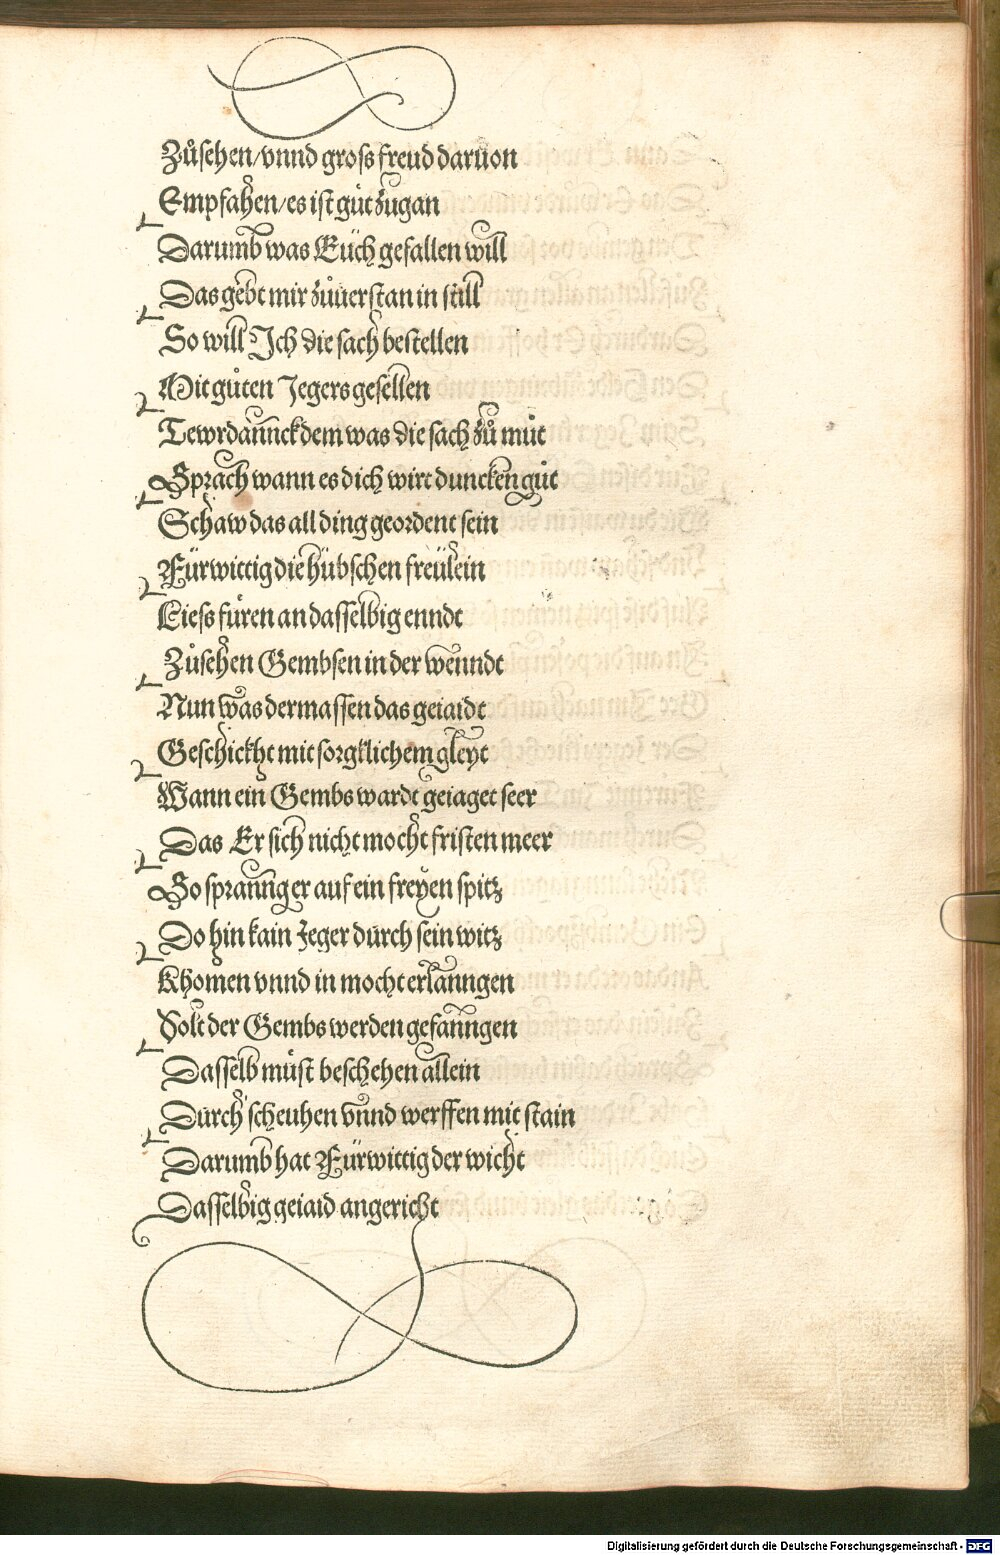 Zůsehen/vnnd gross freud daruon
Empfahen/es ist gůt zugan
Darumb was Euch gefallen will
Das gebt mir zůuerstan in still
So will Ich die sach bestellen
Mit gůten Jegers gesellen
Tewrdannck dem was die sach zů můt
Sprach wann es dich wirt duncken gůt
Schaw das all ding geordent sein
Fürwittig die hübschen freülein
Liess füren an dasselbig enndt
Zůsehen Gembsen in der wenndt
Nun was dermassen das geiaidt
Geschickht mit sorgklichem gleyt
Wann ein Gembs wardt geiaget seer
Das Er sich nicht mocht fristen meer
So sprannger auf ein freyen spitz
Do hin kain Jeger durch sein witz
Khomen vnnd in mocht erlanngen
Solt der Gembs werden gefanngen
Dasselb můst beschehen allein
Durch scheuhen vnnd werffen mit stain
Darumb hat Fürwittig der wicht
Dasselbig geiaid angericht
Digitalisierung gefördert durch die Deutsche Forschungsgemeinschaft - DFG